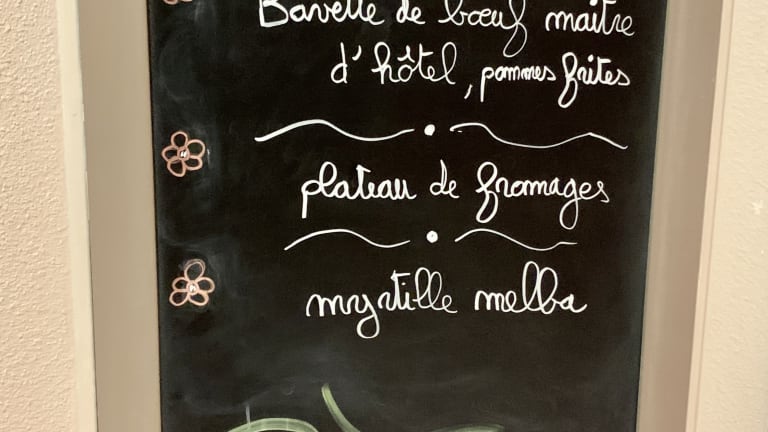 Bavette de bœuf maitre
d'hôtel, pommes frites
plateau de fromages
myrtille melba